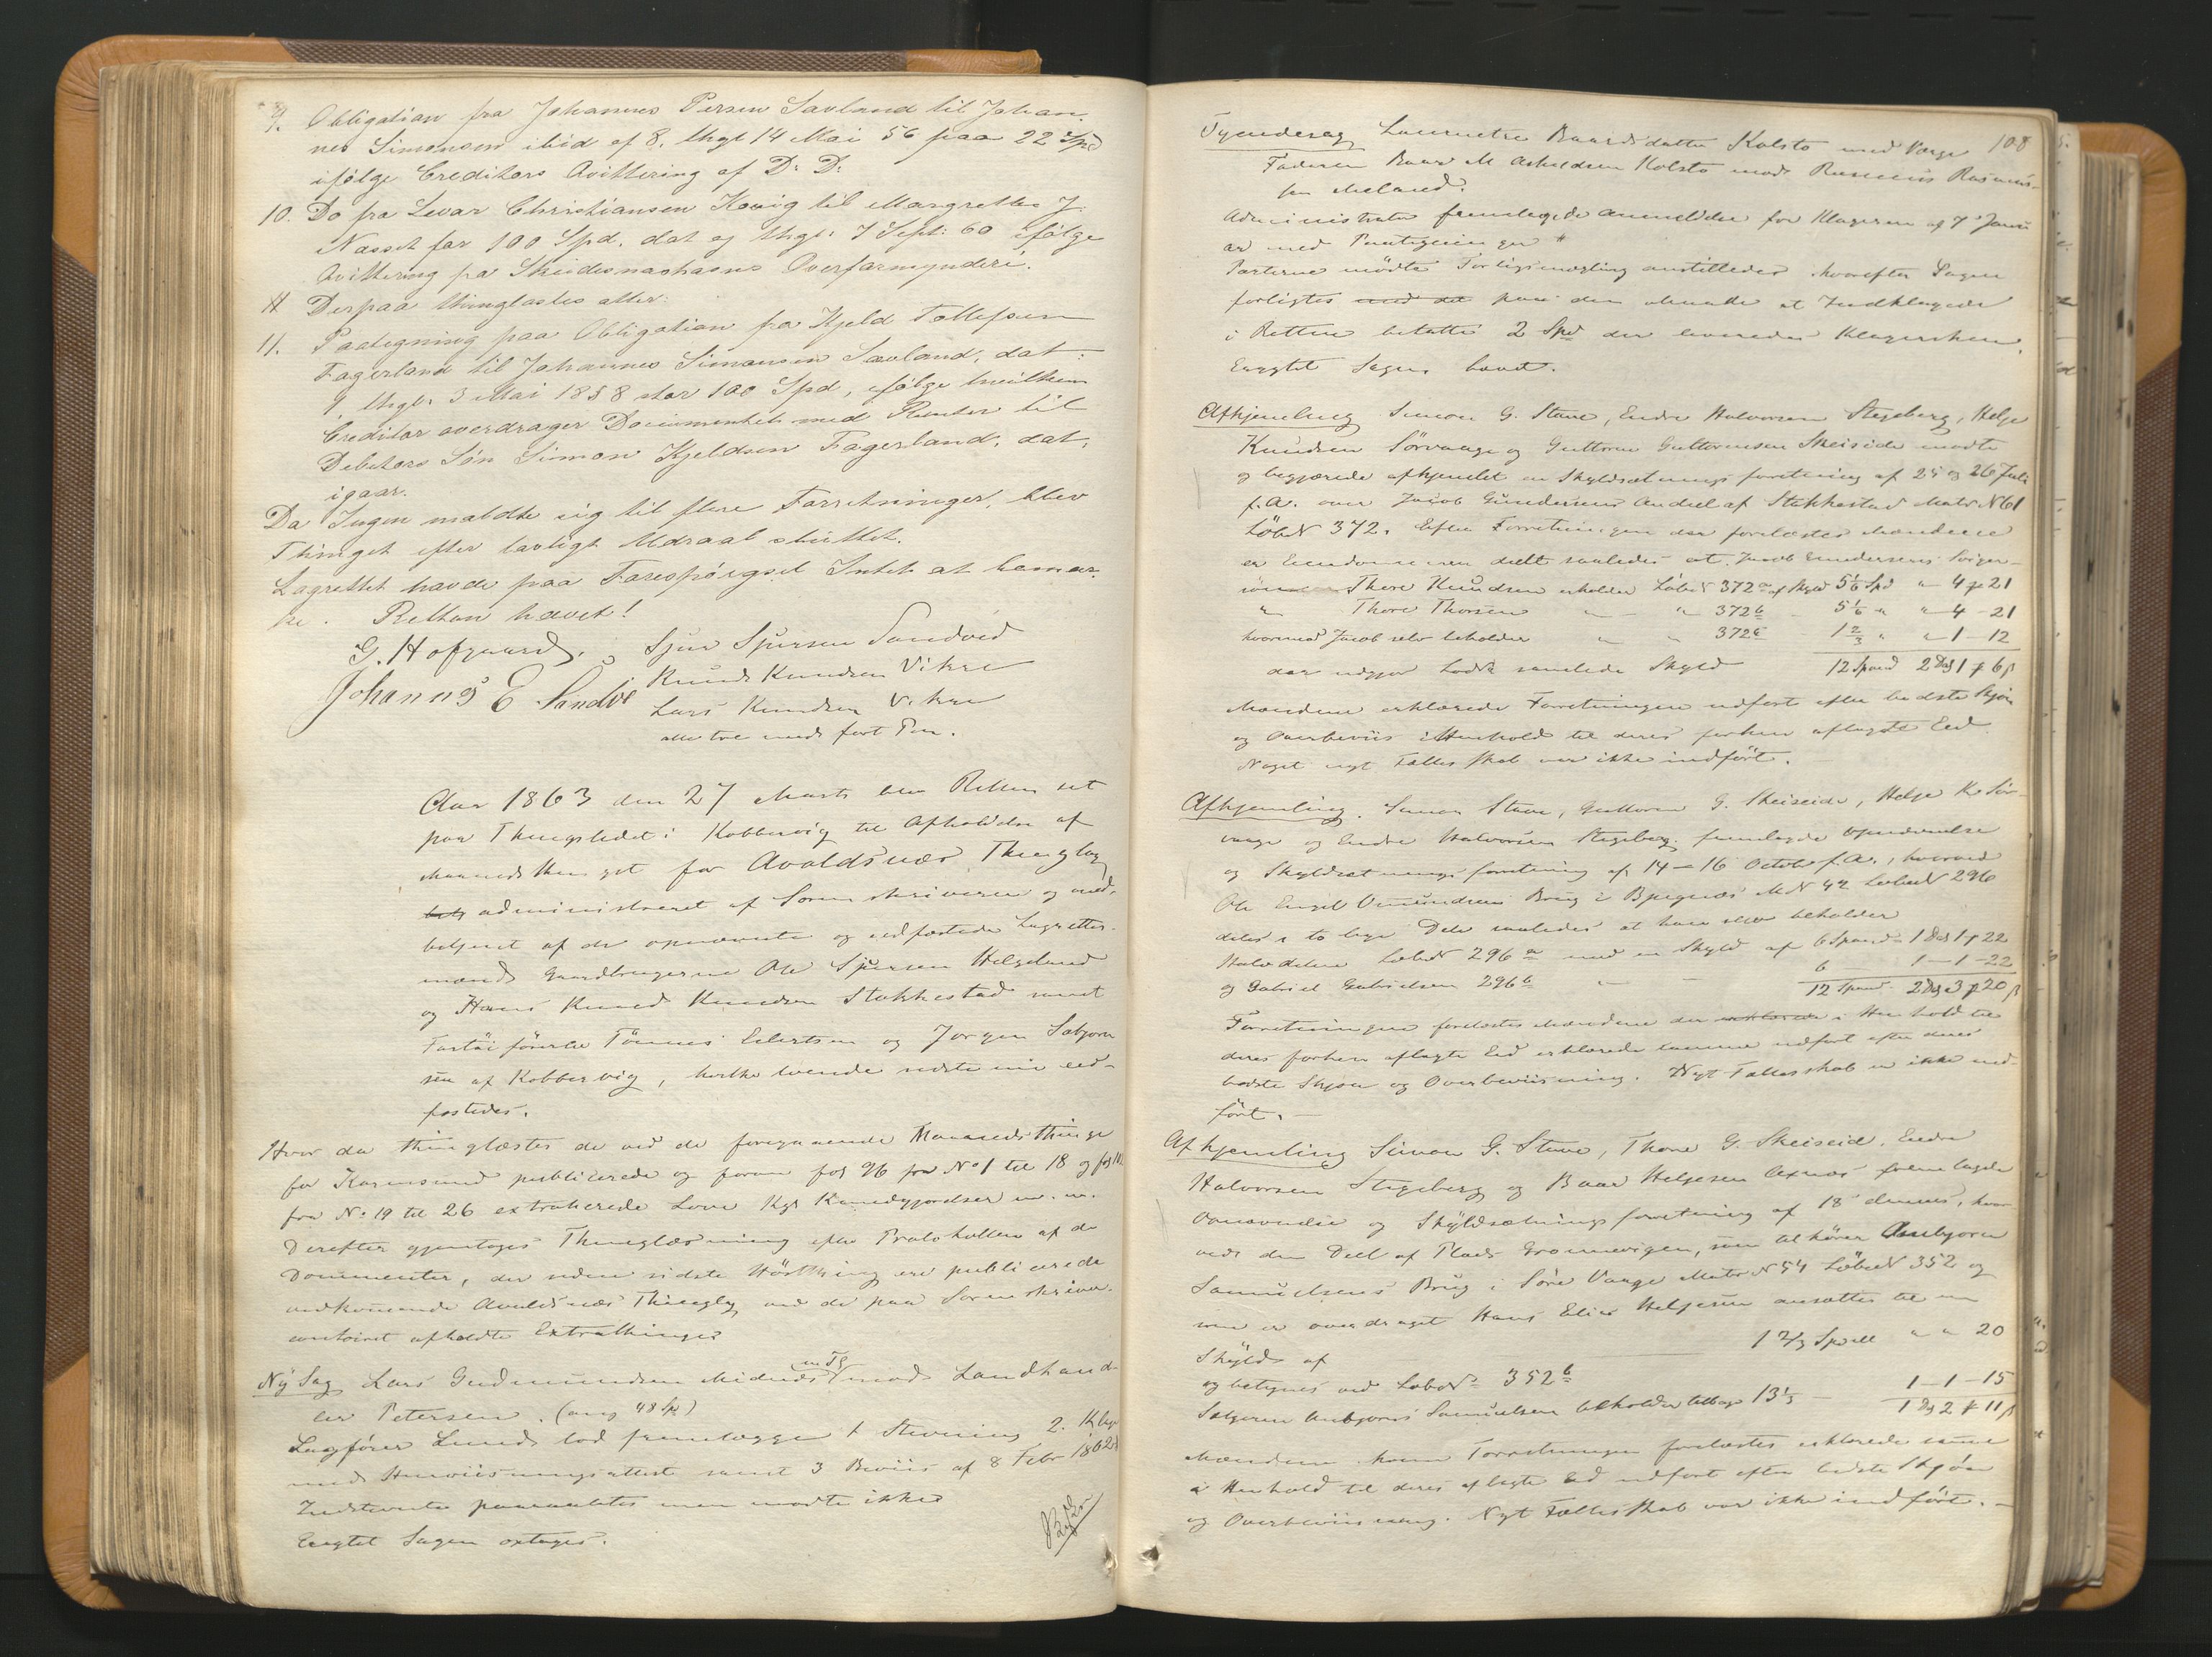 9. Obligation fra Johannes Persen Sævland til Johan-
nes Simonsen ibid af 8. thgl 14 Mai 56 paa 22 Spd
ifølge Creditors Qvittering af D: D:
10. Do fra Levar Christiansen Kovig til Margrethe J.
Nasset for 100 Spd. dat og thgl. 7 Sept: 60 ifølge
Qvittering fra Skudesnæshavns Overformynderi.
# Derpaa thinglæstes atter:
11. Paategning paa Obligation fra Kjeld Tollefsen
Fagerland til Johannes Simonsen Sævland, dat:
1, thgl. 3 Mai 1858 stor 100 Spd, ifølge hvilken
Creditor overdrager Documentet med Renter til
Debitors Søn Simon Kjeldsen Fagerland, dat.
igaar.
Da Ingen meldte sig til flere Forretninger, blev
Thinget efter lovligt Udraab sluttet.
Lagrettet havde paa Forespørgsel Intet at bemær-
ke. Retten hævet!
G. Hofgaard. Sjur Sjursen Sandvid
Johannes E Sandve Knud Knudsen Vikre
Lars Knudsen Vikre
alle tre med ført Pen.
Aar 1863 den 27 Marts blev Retten sat
paa Thingstedet i Kobbervig til Afholdelse af
Maanedsthinget for Avaldsnæs Thinglag
administreret af Sorenskriveren og med-
betjent af de opnævnte og edfæstede Lagrettes-
mænd Gaardbrugerne Ole Sjursen Helgeland
og Hans Knud Knudsen Stokkestad samt
Fartøiførerne Tönnes Eilertsen og Jørgen Sabjørn
sen af Kobbervig, hvilke tvende sidste nu eed-
fæstedes.
Hvor da thinglæstes de ved de foregaaende Maanedsthinge
for Karmsund publicerede og foran fol 96 fra No 1 til 18 og fol
fra No 19 til 26 extraherede Love Kgl Kundgjørelser m. m.
Derefter gjentoges Thinglæsning efter Protokollen af de
Documenter, der siden sidste Høstthing ere publicerede
vedkommende Avaldsnæs Thinglag ved de paa Sorenskriver-
contoiret afholdte Extrathinge
Ny Sag Lars Gudmundsen Midnæs mod Landhand-
ler Petersen. (ang 48 Sp)
Sagfører Lund lod fremlægge 1 Stevning 2. Klage
med Henviisningsattest samt 3 Beviis af 8 Febr 1862
Indstevnte paaraabtes men mødte ikke
Eragtet Sagen optages.
108
Tyendesag Laurentze Baardsdatter Kolstø med Værge
Faderen Baar M Kolstø mod Rasmus Rasmus-
sen Meland.
Administrator fremlagde anmeldelse for Klageren af 7 Janu
ar med Paategninger
Parterne mødte Forligsmægling anstilledes hvorefter Sagen
forligtes med det paa den at Indklagede
i Retten betalte 2 Spd der leveredes Klagersken.
Eragtet Sagen hævet.
Afhjemling Simon G. Stave, Endre Halvorsen Stegeberg, Helge
Knudsen Sørvaage og Guttorm Guttormsen Skeiseide mødte
og begjærede afhjemlet en Skyldsætningsforretning af 25 og 26 Juli
f.A. over Jacob Gundersens Andeel af Stokkestad Matr N 61
LöbeN 372. Efter Forretningen der forelæstes Mændene
er Eiendommen deelt saaledes at Jacob Gundersens Sviger-
sön Thore Knudsen erholder LöbeN 372a af Skyld 5 1/6 Spd " 4 ß 21
" Thore Thorsen " " 372b 5 1/6 " " 4 - 21
hvorimod Jacob selv beholder " " 372c 1 2/3 " " 1 - 12
der udgjør samlede Skyld 12 Spand 2 Dlr 1 # 6 ß
Mændene erklærede Forretningen udført efter bedste Skjøn
og Overbeviis i Henhold til deres forhen aflagte Eed.
Noget nyt Fællesskab var ikke indført.
Afhjemling. Simon Stave, Guttorm G. Skeiseide, Helge K. Sör-
vaage og Endre Halvorsen Stegeberg fremlagde Opnævnelse
og Skyldsætningsforretning af 14 - 16 October f.A., hvorved
Ole Engel Omundsens Brug i Bygnæs MN 42 LøbeN 296
deles i to lige Dele saaledes at han selv beholder
Halvdelen LøbeN 296a med en Skyld af 6 Spand 1 Dlr 1 # 22
og Gabriel Gabrielsen 296b " 6 1 - 1 - 22
12 Spand 2 Dlr 3 # 20 ß
Forretningen forelæstes Mændene der erklærede i Henhold til
deres forhen aflagte Eed erklærede samme udført efter deres
bedste Skjøn og Overbeviisning. Nyt Fællesskab er ikke ind-
ført. -
Afhjemling Simon G. Stave, Thore G. Skeiseid, Endre
Halvorsen Stegeberg og Baar Helgesen fremlagde
Opnævnelse og Skyldsætningsforretning af 18 dennes, hvor
ved den Deel af Plads Grønnevigen, som tilhører Anbjørn
Samuelsens Brug i Søre Vaage Matr N 54 LöbeN 352 og
som er overdraget Hans Elias Helgesen ansattes til en
Skyld af 1 2/3 Spd " " 20
og betegnes ved LøbeN 352b
Sælgeren Anbjørn Samuelsen beholder tilbage 13 1/3 1 - 1 - 15
1 Dlr 2 # 11 ß
Mændene hvem Forretningen forelæstes erklærede samme
i Henhold til deres aflagte Eed udført efter bedste Skjøn
og Overbeviisning. Nyt Fællesskab var ikke indført. -